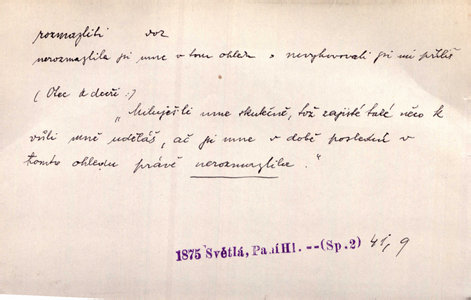 rozmazliti dok
nerozmazlila jsi mne v tom ohledu = nevyhovovali jsi mi příliš
(Otec k dceři:)
„Miluješ-li mne skutečně, tož zajisté také něco k
vůli mně uděláš, ač jsi mne v době poslední v
tomto ohledu právě nerozmazlila."
1875 Světlá, Paní Hl. -- (Sp. 2) 41, 9